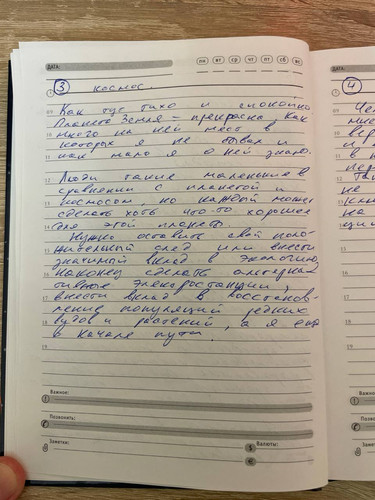 ДАТА:
пн вт ср чт пт сб вс
3 космос.
4
09 Как тут тихо и спокойно
Планета Земля – прекрасна, как
10 много на ней мест в
которых я не бывал и
11 как мало я о ней знаю.
12 Люди такие маленькие в
сравнении с планетой и
13 космосом, но каждый может
сделать хоть что-то хорошее
14 для этой планеты.
Нужно оставить свой поло-
15 жительный след или внести
значимый вклад в экологию,
16 наконец сделать альтерна-
тивные электростанции,
17 внести вклад в восстанов-
ление популяций редких
18 видов и растений, а я ещё
в начале пути.
19
Важное:
Позвонить:
Заметки:
Валюты:
$
€